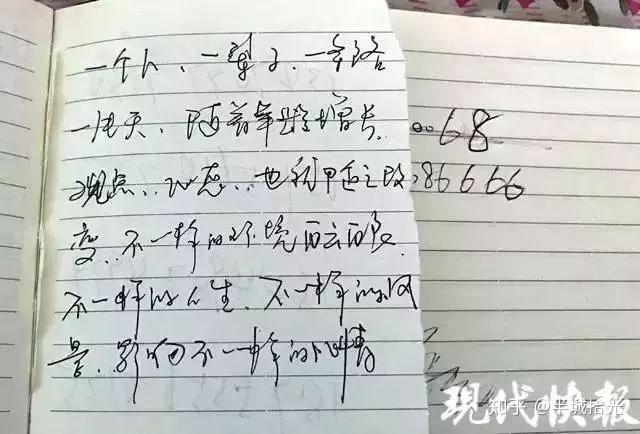 一个人、一辈子、一条路
一片天,随着年龄增长
观点、心态、也利用适之改
变、不一样的环境
不一样的人生、不一样的风
景、影响不一样的心情
68
86666
现代快报
知乎 @半城拾光